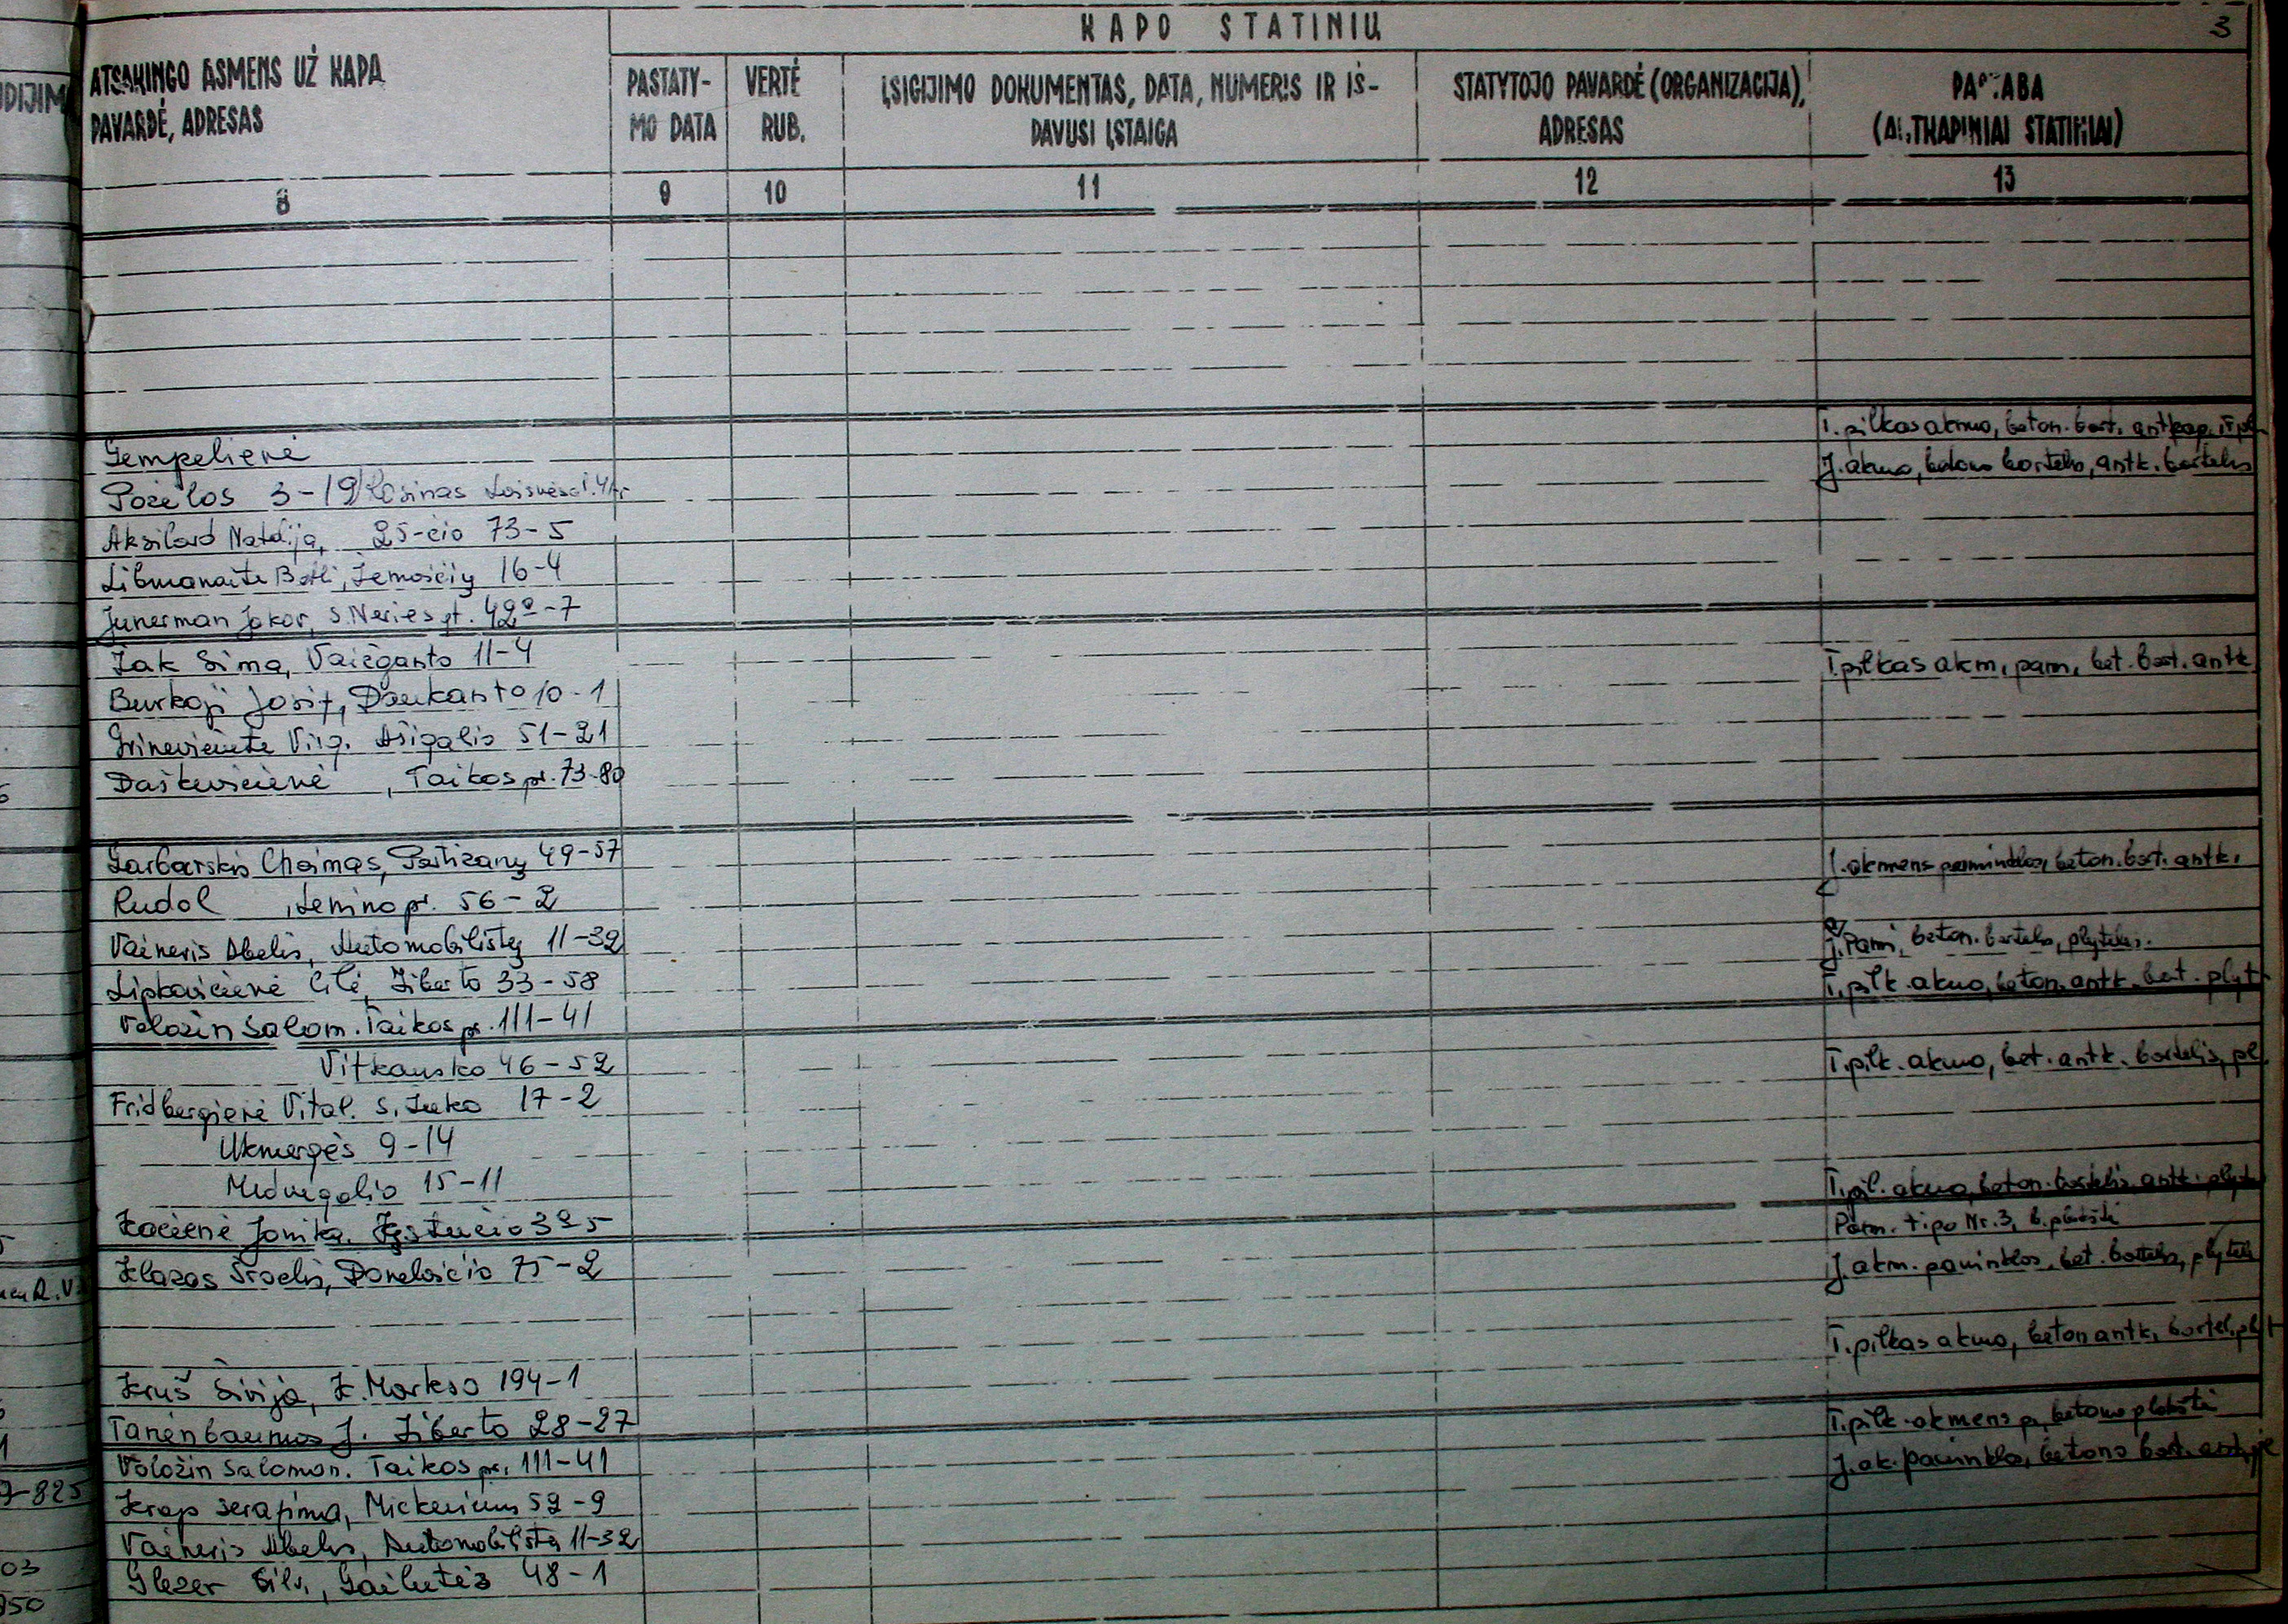 KAPO STATINIŲ
3
ATSAKINGO ASMENS UŽ KAPA
PAVARDĖ, ADRESAS
PASTATY-
MO DATA
VERTĖ
RUB.
ĮSIGIJIMO DOKUMENTAS, DATA, NUMERIS IR IŠ-
DAVUSI ĮSTAIGA
STATYTOJO PAVARDĖ (ORGANIZACIJA),
ADRESAS
PASTABA
(ANTKAPINIAI STATINIAI)
8 9 10 11 12 13
T. pilkas akmuo, beton. bort. antkap.
Gempelienė
J. akmuo, betono bortelis, antk. bortelis
Požėlos 3-19
Natalija, 25-čio 73-5
Libmanaitė Žemaičių 16-4
Junerman Jokov, S. Neries gt. 42a-7
Žak Sima, Vaižganto 11-4
T. pilkas akm. pam. bet. bort. antk
Josif, Daukanto 10-1
Grinevičiutė Virg. Ašigalio 51-21
Daškevičienė, Taikos pr. 73-80
Garbarskis Chaimas, Partizanų 49-57
J. akmens paminklas, beton. bort. antk.
Rudol, Lenino pr. 56-2
Vaineris Abelis, Automobilistų 11-32
J. Pam., beton. bortelis, plytelės.
Lipkovičienė Cilė, Žiberto 33-58
T. pilk. akmuo, beton. antk. bort. plyt
Voložin Salom. Taikos pr. 111-41
Vitkausko 46-52
T. pilk. akmuo, bet. antk. bortelis, pl
Fridbergienė Vital. S. Žuko 17-2
Ukmergės 9-14
Medvėgalio 15-11
T. pil. akmuo, beton. bortelis, antk. plyt
Kacienė Kęstučio
Pam. tipo Nr. 3, b. plokštė
Klazas Donelaičio 75-2
J. akm. paminklas, bet. bortelis, plytelė
T. pilkas akmuo, beton antk, bortel. plyt
Kruš K. Markso 194-1
Tanenbaumas J. Žiberto 28-27
T. pilk. akmens p., betono plokštė
Voložin Salomon. Taikos pr. 111-41
J. ak. paminklas, betono bort.
Krap Serafima, Mickevičius 52-9
Vaineris Abelis, Automobilistų 11-32
Glezer Gailutės 48-1